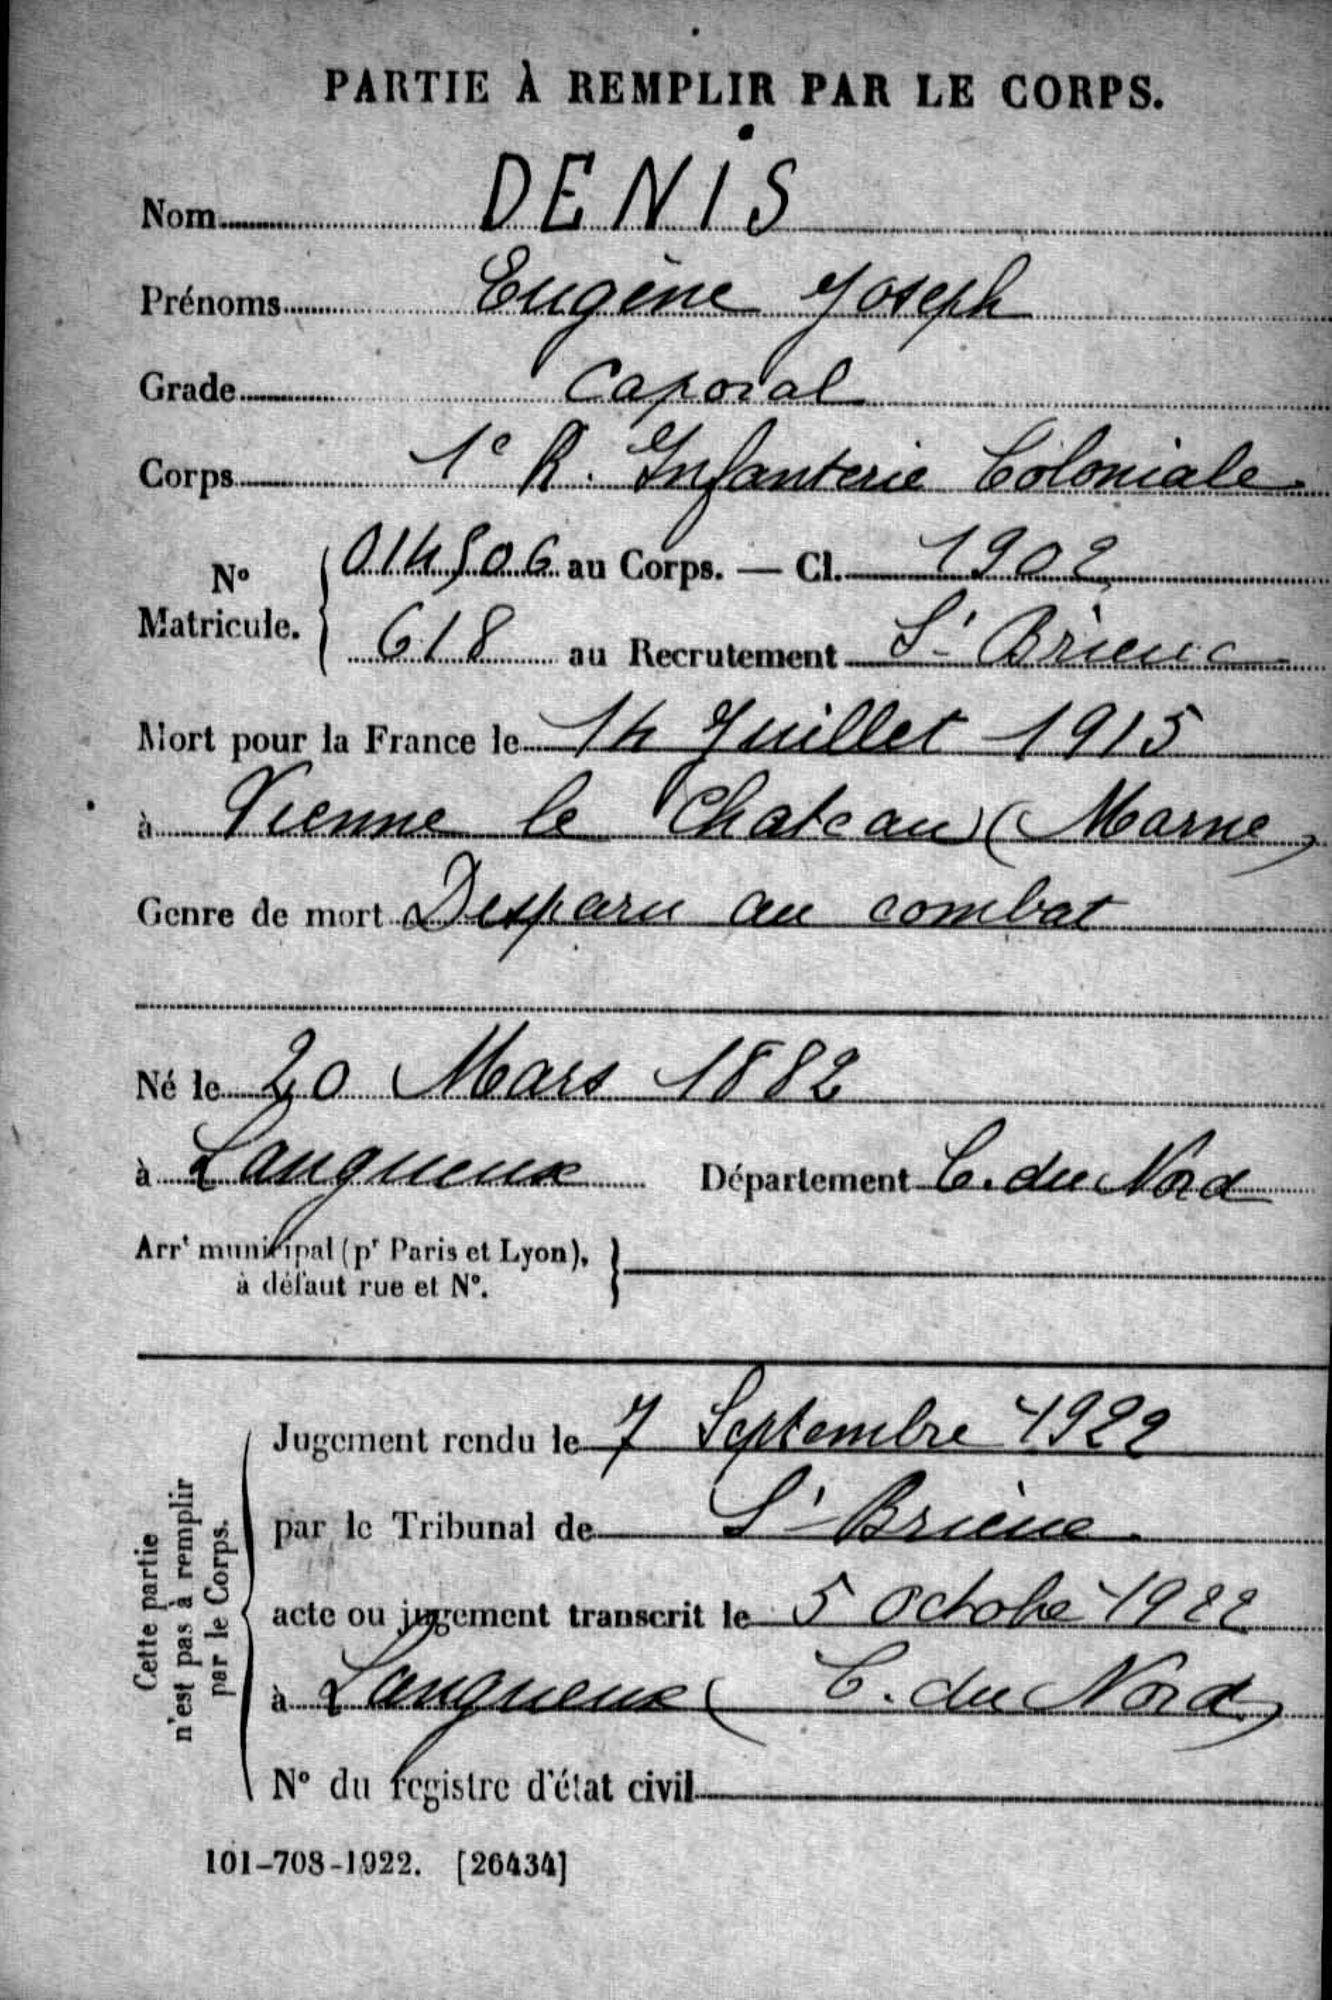 PARTIE À REMPLIR PAR LE CORPS.
Nom DENIS
Prénoms Eugène Joseph
Grade Caporal
Corps 1e R. Infanterie Coloniale
N° Matricule. 014506 au Corps. — Cl. 1902
618 au Recrutement St Brieuc
Mort pour la France le 14 Juillet 1915
à Vienne le Chateau (Marne)
Genre de mort Disparu au combat
Né le 20 Mars 1882
à Langueux Département C. du Nord
Arrt municipal (pr Paris et Lyon),
à défaut rue et N°.
Cette partie
n'est pas à remplir
par le Corps.
Jugement rendu le 7 Septembre 1922
par le Tribunal de St Brieuc
acte ou jugement transcrit le 5 octobre 1922
à Langueux (C. du Nord)
N° du registre d'état civil
101-708-1922. [26434]